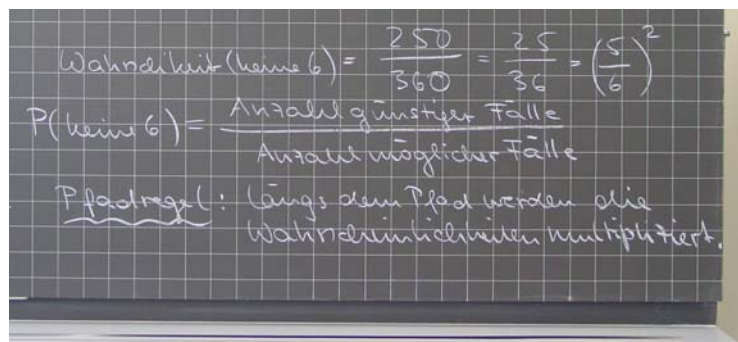 Wahrscheinlichkeit (keine 6) = 250/360 = 25/36 = (5/6)²
P(keine 6) = Anzahl günstiger Fälle / Anzahl möglicher Fälle
Pfadregel: Längs dem Pfad werden die
Wahrscheinlichkeiten multipliziert.